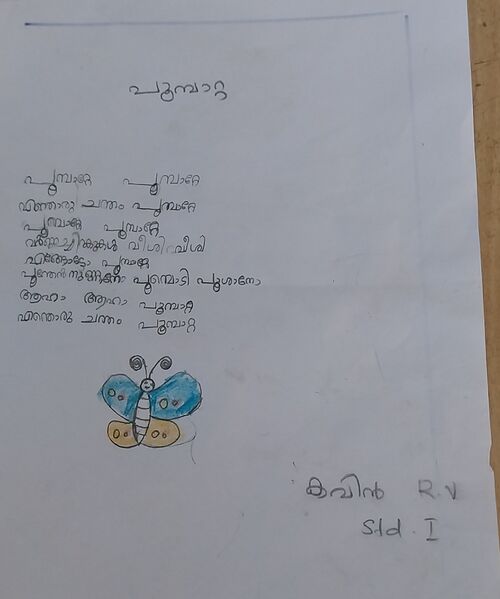 പൂമ്പാറ്റ
പൂമ്പാറ്റേ പൂമ്പാറ്റേ
എന്തൊരു ചന്തം പൂമ്പാറ്റേ
പൂമ്പാറ്റേ പൂമ്പാറ്റേ
വർണ്ണച്ചിറകുകൾ വീശി വീശി
എങ്ങോട്ടാ പൂമ്പാറ്റേ
പൂന്തേൻ നുണയാനോ പൂമ്പൊടി പൂശാനോ
ആഹാ ആഹാ പൂമ്പാറ്റ
എന്തൊരു ചന്തം പൂമ്പാറ്റ
കവിൻ R.V
Std. I